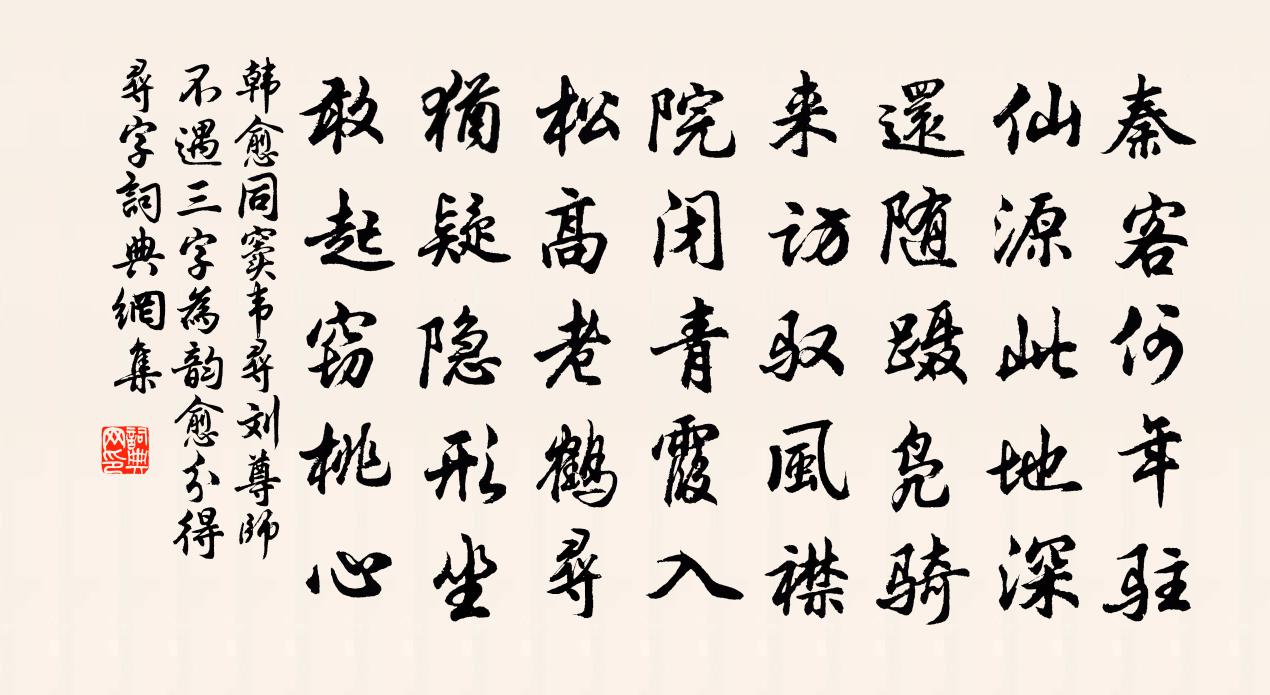 秦客何年驻
仙源此地深
還随蹑凫骑
来访驭風襟
院闭青霞入
松高老鹤尋
猶疑隐形坐
敢起窃桃心
韩愈同窦韦尋刘尊師
不遇三字為韵愈分得
尋字詞典網集
詞典網印